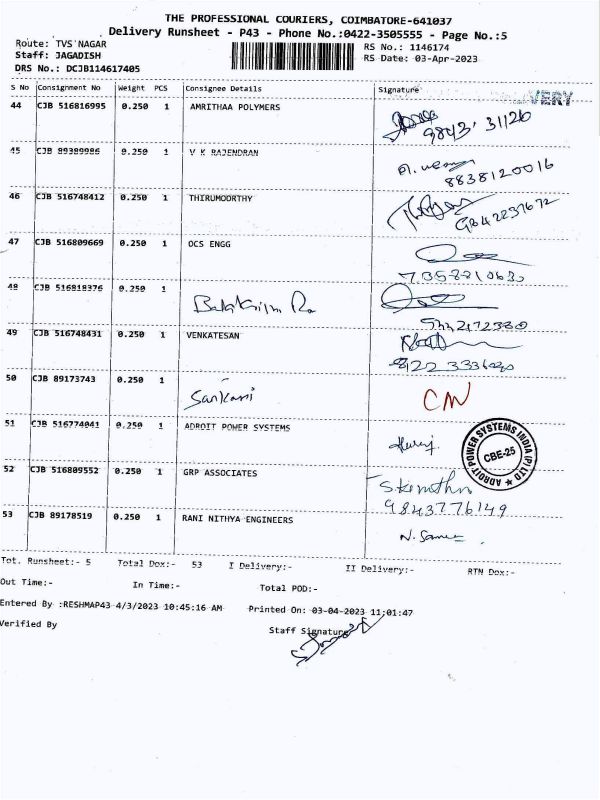 THE PROFESSIONAL COURIERS, COIMBATORE-641037
Delivery Runsheet - P43 - Phone No.:0422-3505555 - Page No.:5
Route: TVS NAGAR
RS No.: 1146174
Staff: JAGADISH
RS Date: 03-Apr-2023
DRS No.: DCJB114617405
S No Consignment No Weight PCS Consignee Details Signature
44 CJB 516816995 0.250 1 AMRITHAA POLYMERS
9843 31126
45 CJB 89389986 0.250 1 V K RAJENDRAN
8838120016
46 CJB 516748412 0.250 1 THIRUMOORTHY
9842237672
47 CJB 516809669 0.250 1 OCS ENGG
48 CJB 516818376 0.250 1
49 CJB 516748431 0.250 1 VENKATESAN
50 CJB 89173743 0.250 1 Sankari
51 CJB 516774041 0.250 1 ADROIT POWER SYSTEMS
ADROIT POWER SYSTEMS INDIA (P) LTD
CBE-25
52 CJB 516809552 0.250 1 GRP ASSOCIATES
9843776149
53 CJB 89178519 0.250 1 RANI NITHYA ENGINEERS
Tot. Runsheet:- 5 Total Dox:- 53 I Delivery:- II Delivery:- RTN Dox:-
Out Time:- In Time:- Total POD:-
Entered By :RESHMAP43 4/3/2023 10:45:16 AM Printed On: 03-04-2023 11:01:47
Verified By Staff Signature